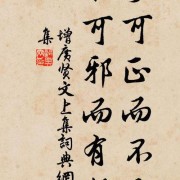 可正而不
可邪而有
增廣賢文上集詞典網
集